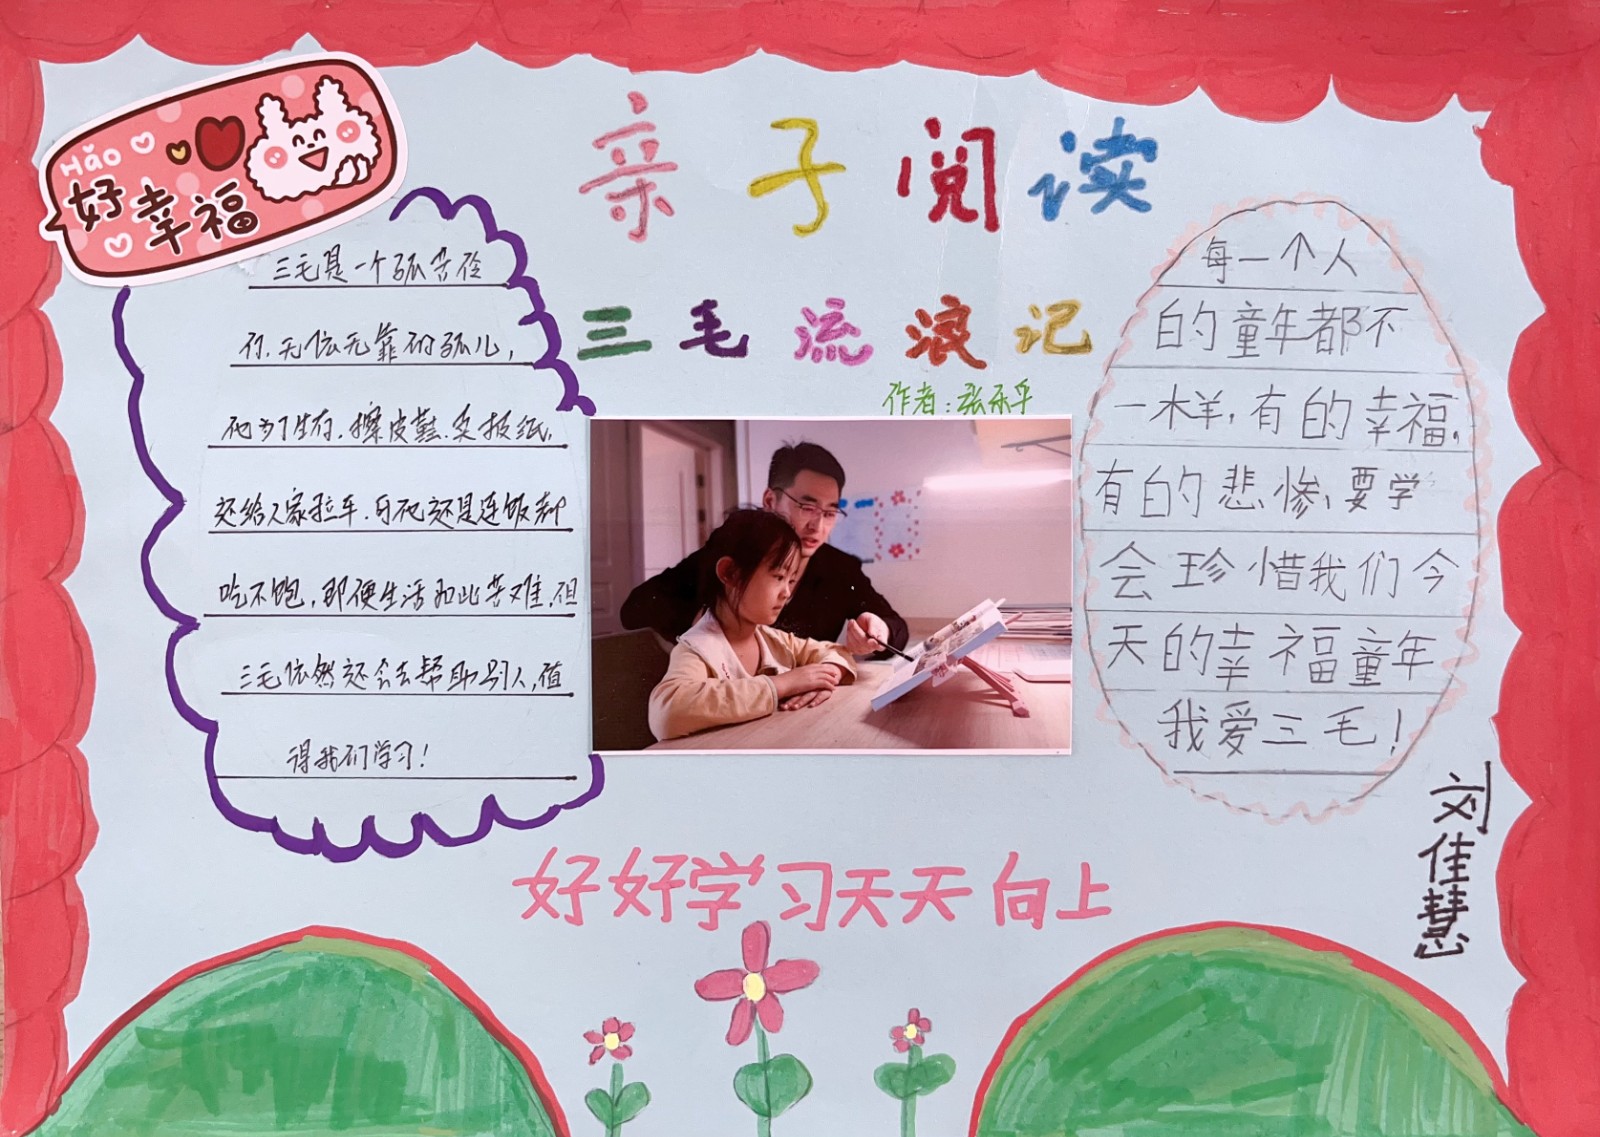 Hǎo
好幸福
亲子阅读
三毛流浪记
作者:张乐平
三毛是一个孤苦伶
仃、无依无靠的孤儿,
他为了生存,擦皮鞋、卖报纸,
还给人家拉车,可他还是连饭都
吃不饱,即便生活如此苦难,但
三毛依然还会去帮助别人,值
得我们学习!
每一个人
的童年都不
一样,有的幸福,
有的悲惨,要学
会珍惜我们今
天的幸福童年
我爱三毛!
刘佳慧
好好学习天天向上